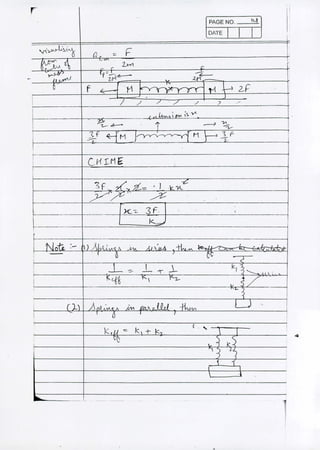 PAGE NO.
DATE
visualising
from
Centre of
mass
frame
a_cm = F / 2m
F M K M 2F
extension is x
x/2 x/2
3F/2 M M 3F/2
CMIME
3F/2 × x/2 × 2 = 1/2 kx²
x = 3F/K
Note :- (1) Springs in series, then
1/Keff = 1/K₁ + 1/K₂
K₁
K₂
(2) Springs in parallel, then
Keff = K₁ + K₂
K₁ K₂